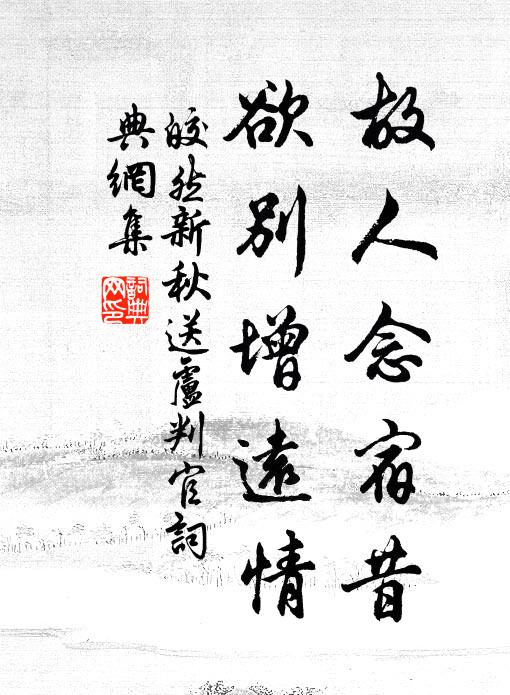 故人念宿昔
欲別增遠情
皎然新秋送盧判官詞
典網集
詞典
网印